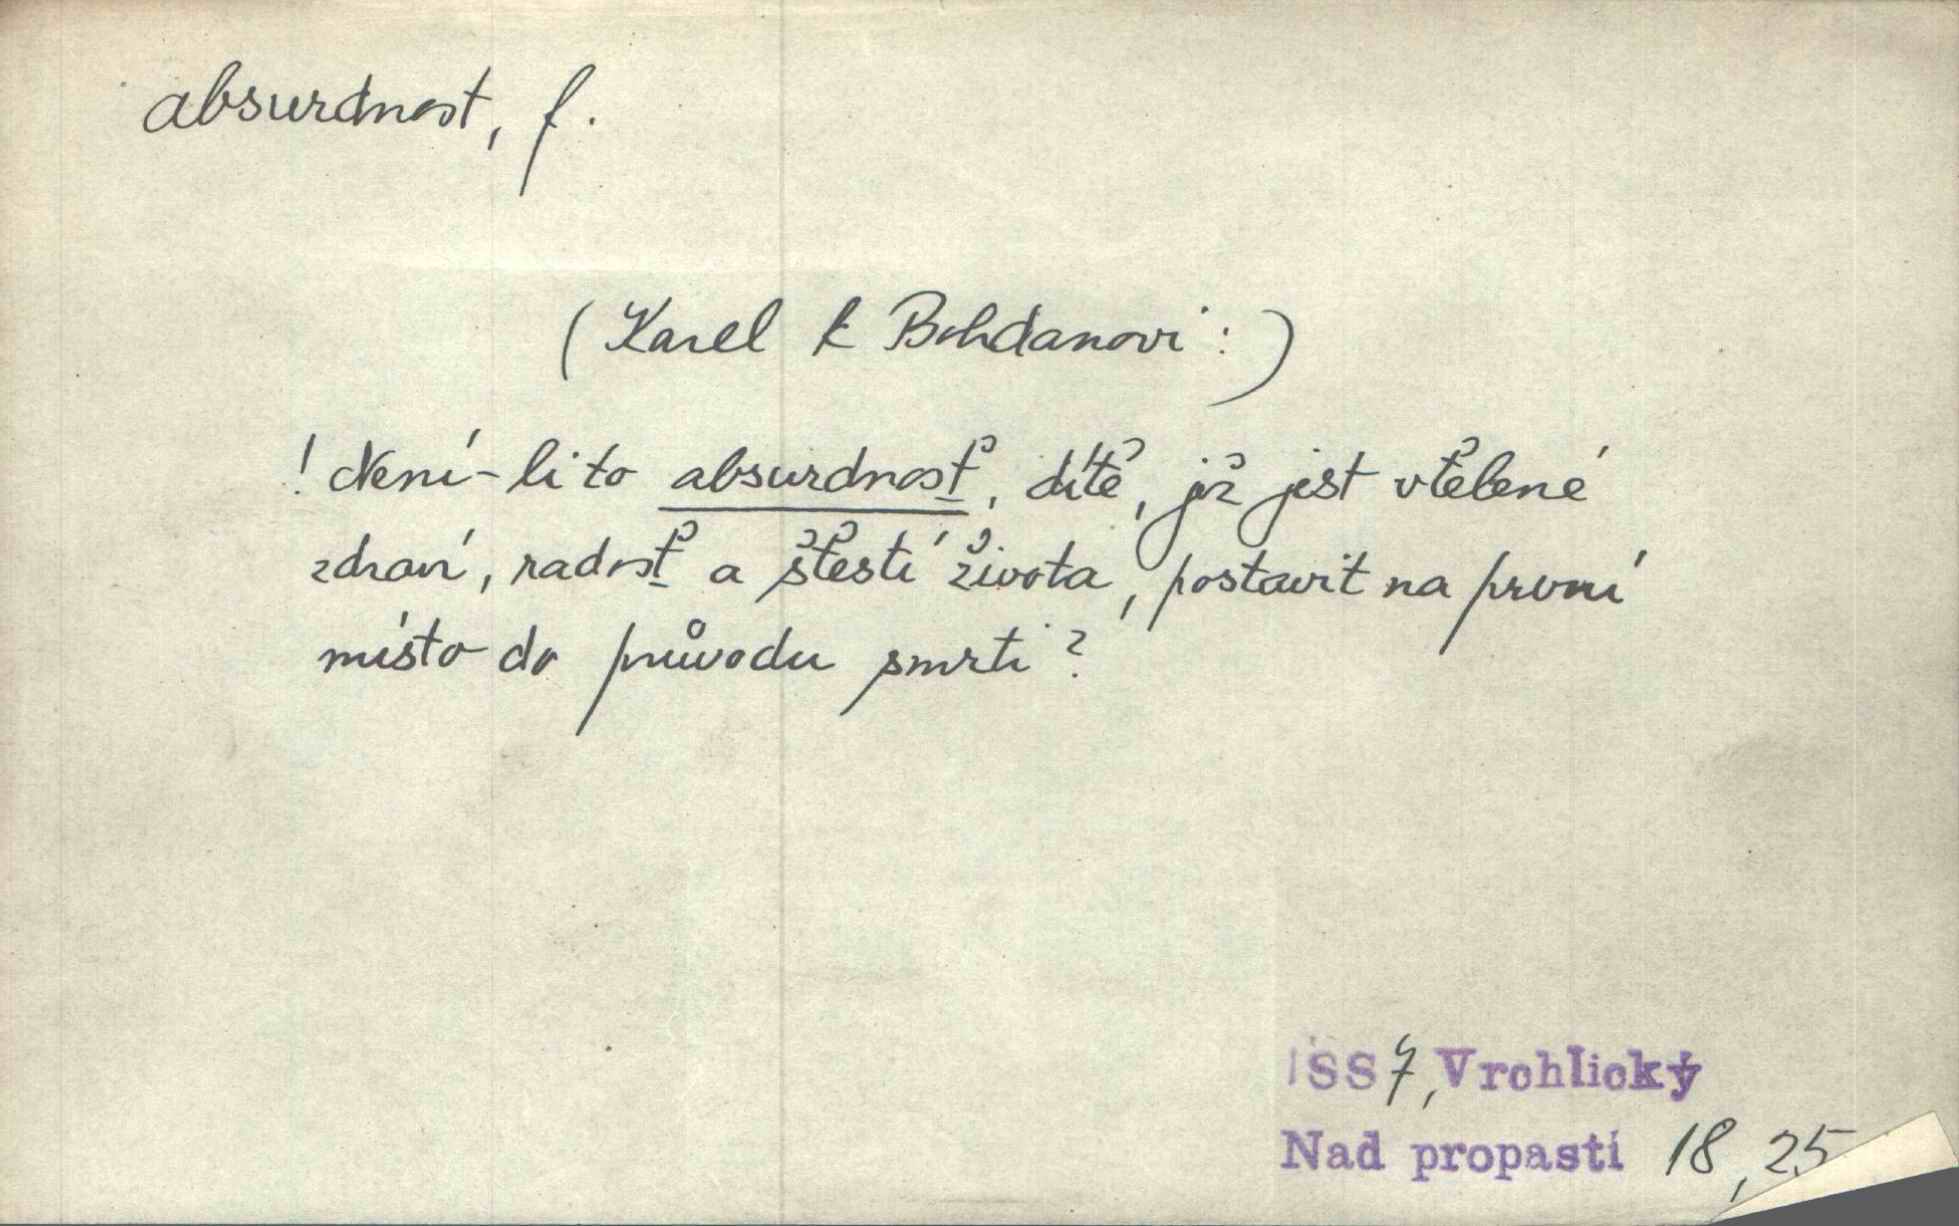 absurdnost, f.
(Karel k Bohdanovi:)
! Není-li to absurdnosť, dítě, jž jest vtělené
zdraví, radosť a štěstí života, postavit na první
místo do průvodu smrti?
SS7, Vrchlický
Nad propastí 18, 25